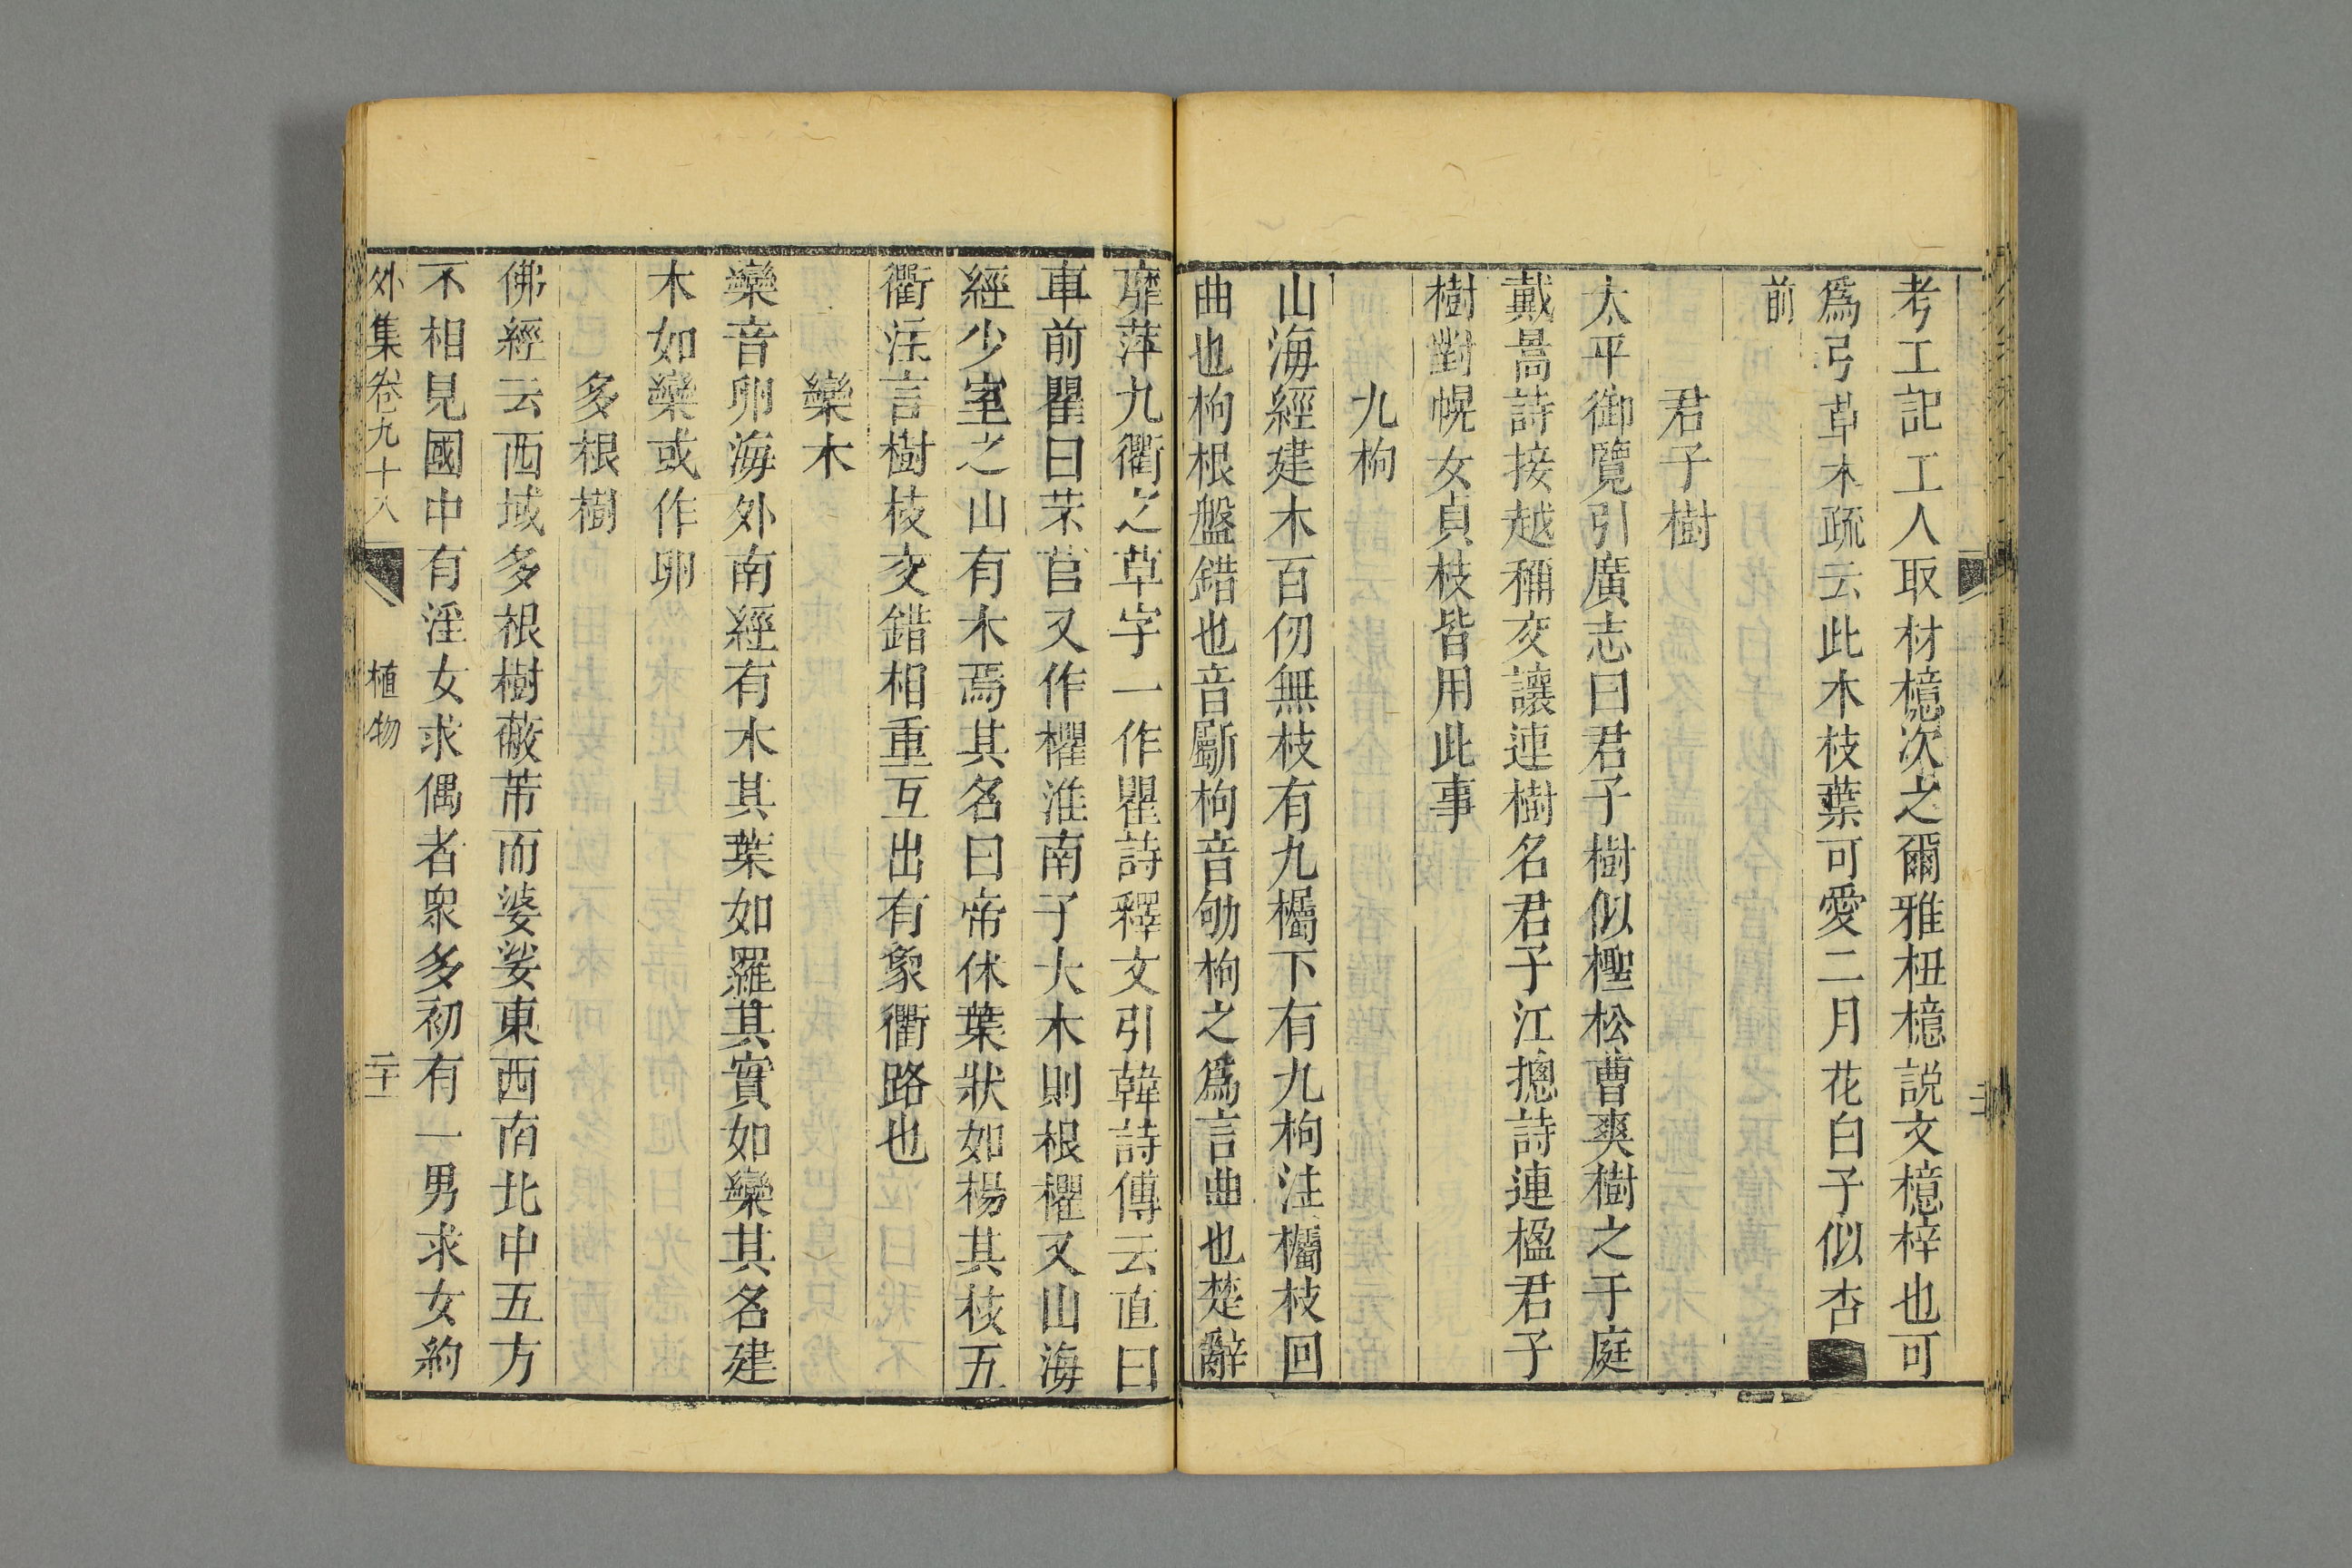 考工記工人取材檍次之爾雅杻檍説文檍梓也可
爲弓草木疏云此木枝葉可愛二月花白子似杏
前
君子樹
太平御覽引廣志曰君子樹似檉松曹爽樹之于庭
戴暠詩接越稱交讓連樹名君子江摠詩連楹君子
樹對幌女貞枝皆用此事
九枸
山海經建木百仞無枝有九欘下有九枸注欘枝回
曲也枸根盤錯也音斸枸音劬枸之爲言曲也楚辭
靡蓱九衢之草字一作瞿詩釋文引韓詩傳云直曰
車前瞿曰芣苢又作欋淮南子大木則根欋又山海
經少室之山有木焉其名曰帝休葉狀如楊其枝五
衢注言樹枝交錯相重互出有象衢路也
欒木
欒音卵海外南經有木其葉如羅其實如欒其名建
木如欒或作卵
多根樹
佛經云西域多根樹蔽芾而婆娑東西南北中五方
不相見國中有淫女求偶者衆多初有一男求女約
外集卷九十八 植物 二十